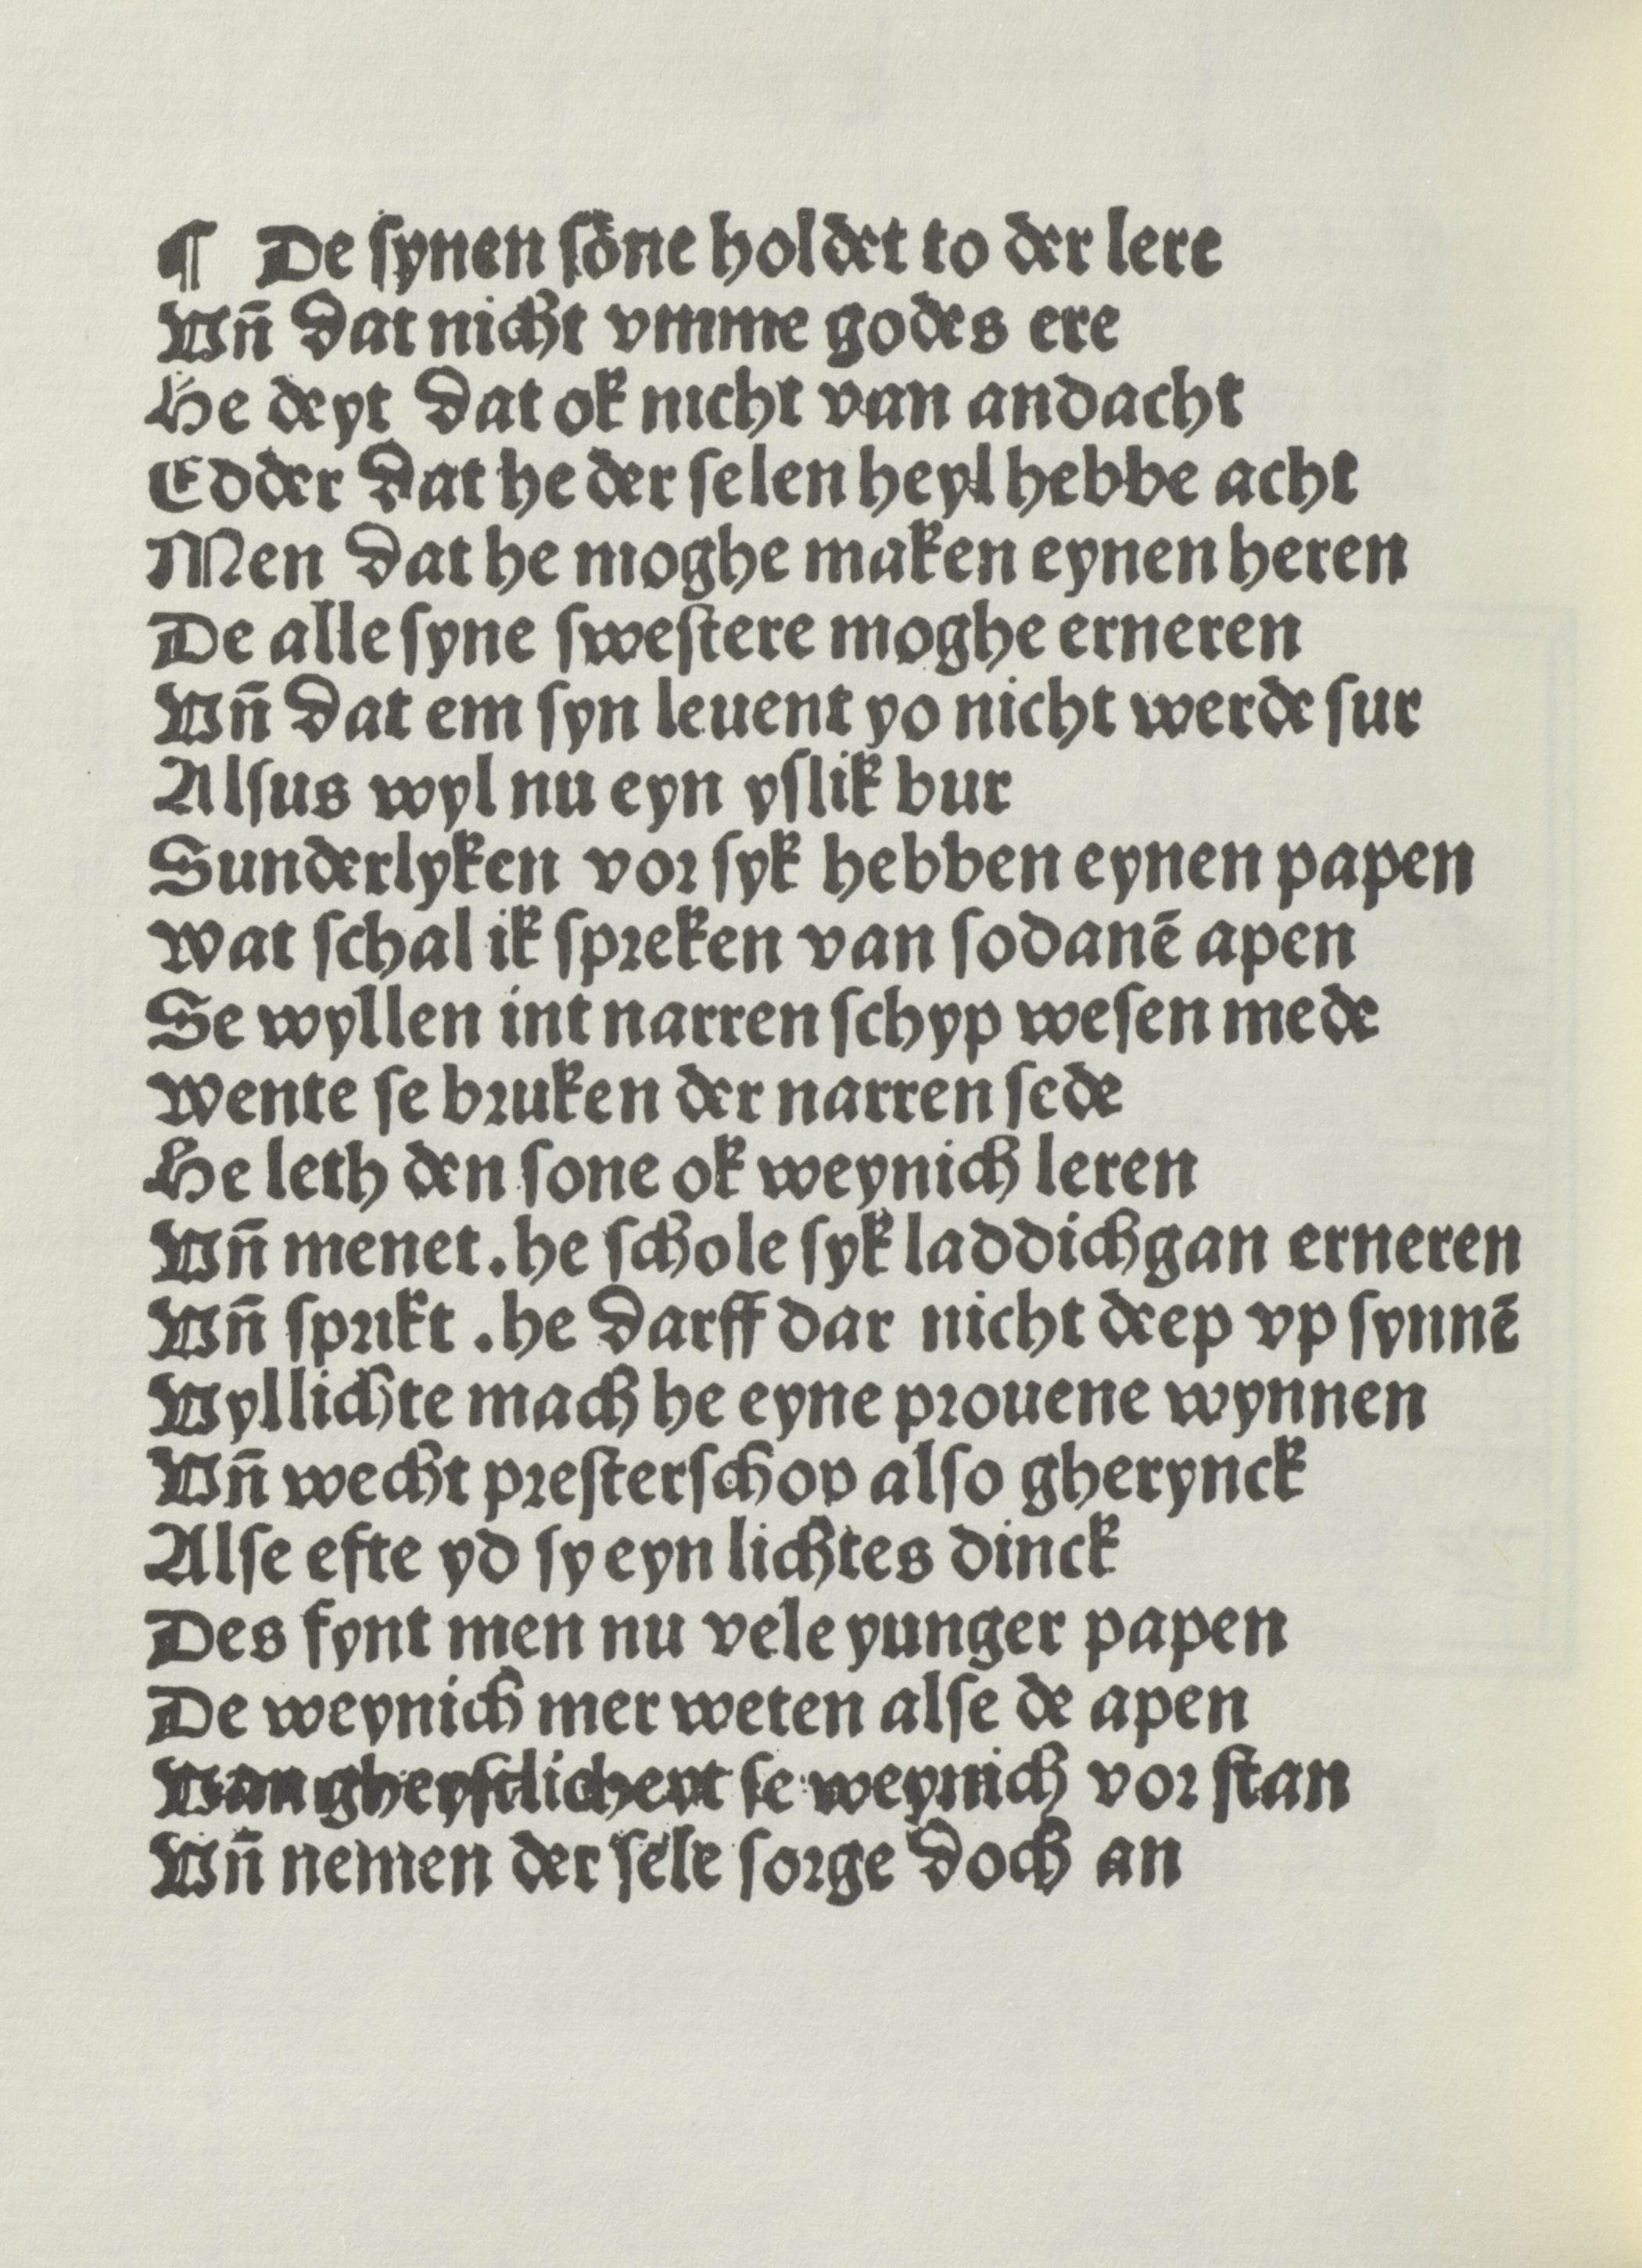 ¶ De ſynen ſöne holdet to der lere
Vn̄ dat nicht vmme godes ere
He deyt dat ok nicht van andacht
Edder dat he der ſelen heyl hebbe acht
Men dat he moghe maken eynen heren
De alle ſyne ſweſtere moghe erneren
Vn̄ dat em ſyn leuent yo nicht werde ſur
Alſus wyl nu eyn yſlik bur
Sunderlyken voꝛ ſyk hebben eynen papen
wat ſchal ik ſpꝛeken van ſodanē apen
Se wyllen int narren ſchyp weſen mede
wente ſe bꝛuken der narren ſede
He leth den ſone ok weynich leren
Vn̄ menet.he ſchole ſyk laddichgan erneren
Vn̄ ſpꝛikt .he darff dar nicht deep vp ſynnē
Wyllichte mach he eyne pꝛouene wynnen
Vn̄ wecht pꝛeſterſchop alſo gherynck
Alſe efte yd ſy eyn lichtes dinck
Des fynt men nu vele yunger papen
De weynich mer weten alſe de apen
Van gheyſtlicheyt ſe weynich voꝛ ſtan
Vn̄ nemen der ſele ſoꝛge doch an